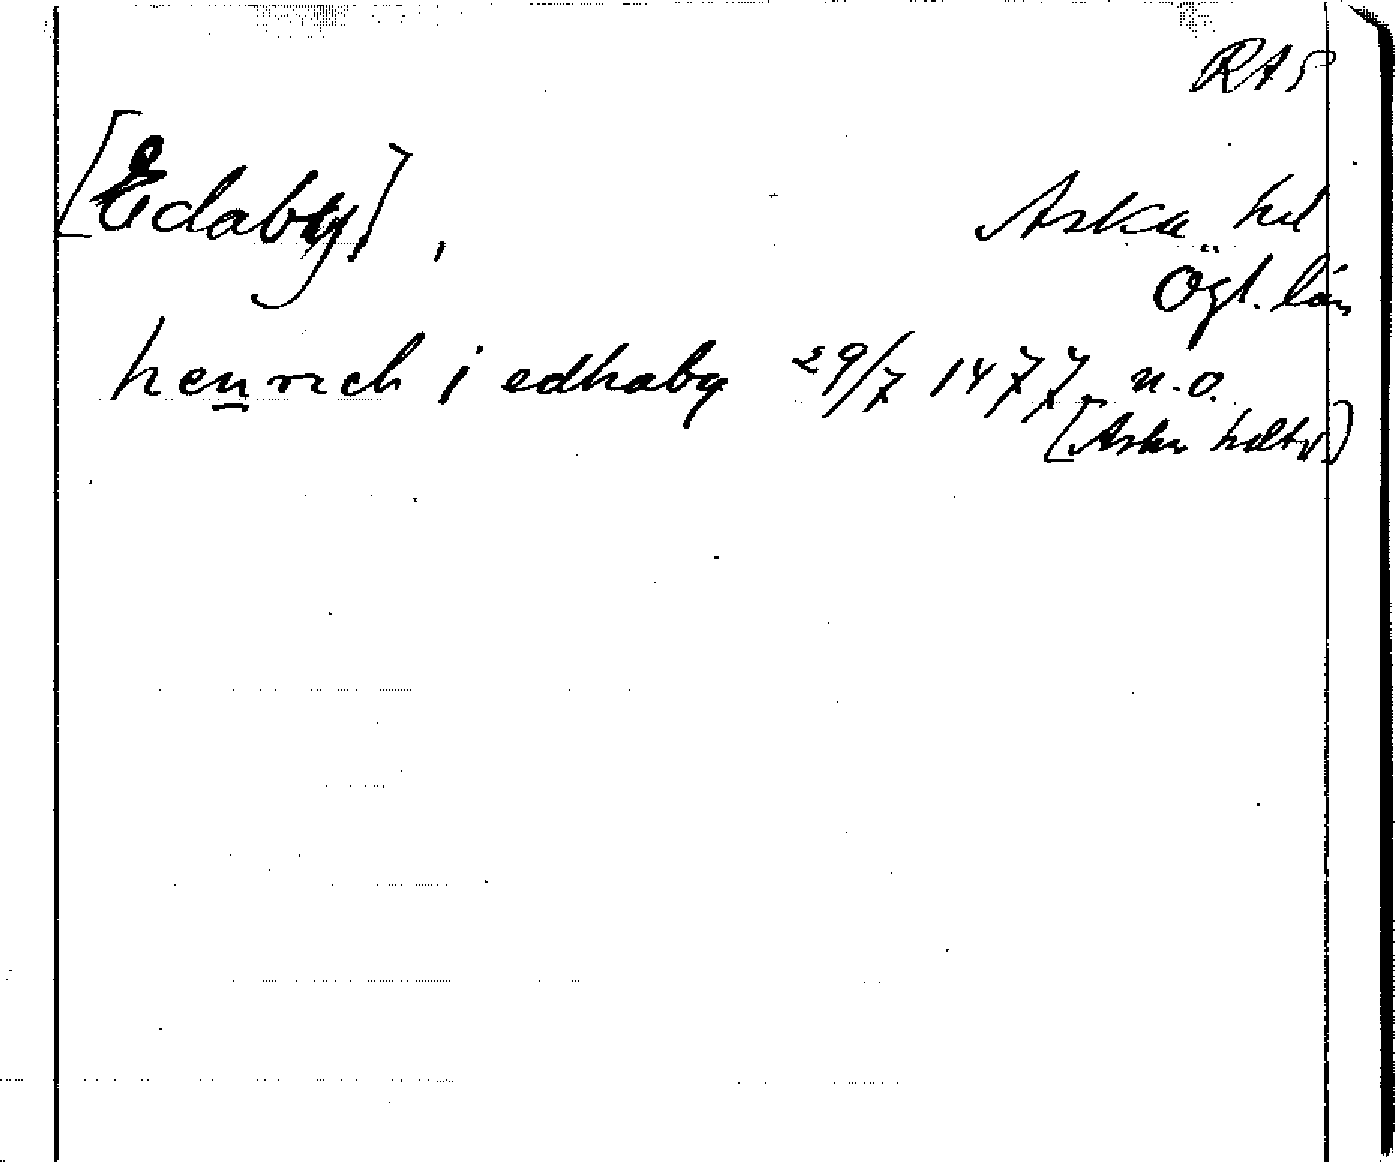 RAS
[Edaby],
Aska hd
Ögl. län
henrich i edhaby 29/7 1477 n.o.
[Aska hdsty]